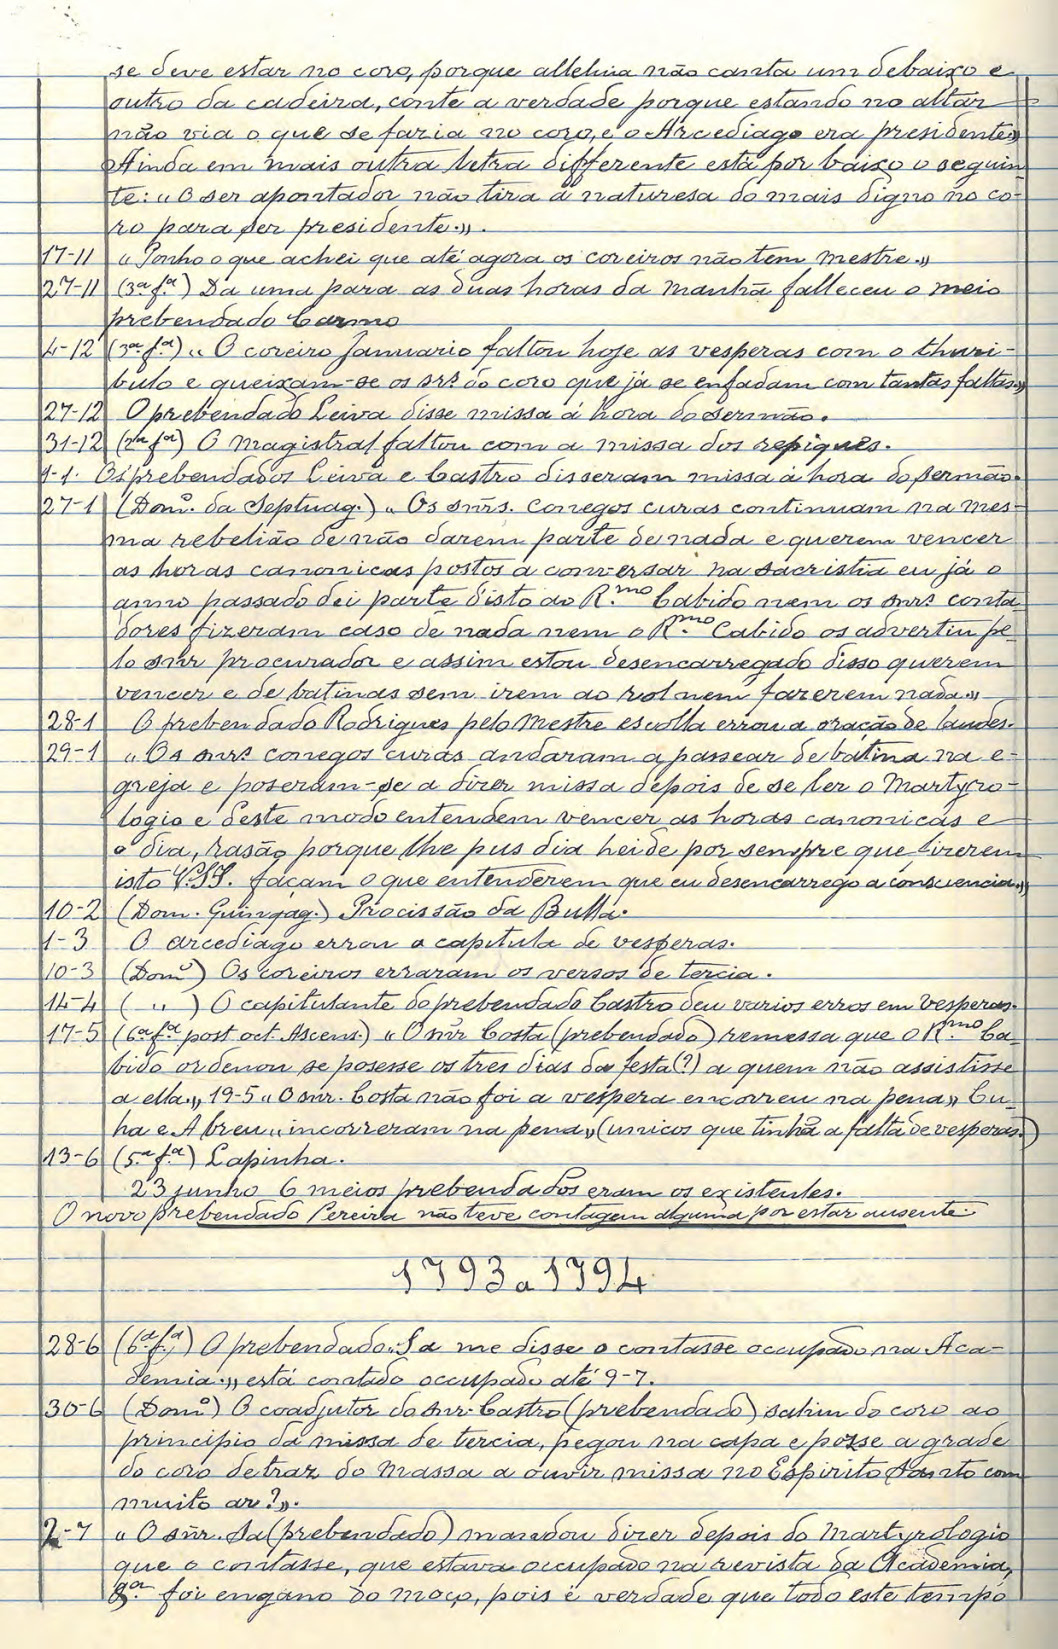 se deve estar no coro, porque alleluia não canta um debaixo e
outro da cadeira, conte a verdade porque estando no altar
não via o que se faria no coro, e o Arcediago era presidente»
Ainda em mais outra letra differente está por baixo o seguin
te: "O ser apontador não tira a naturesa do mais digno no co-
ro para ser presidente.».
17-11 "Ponho o que achei que até agora os coreiros não tem mestre.»
27-11 (3ª fª) Da uma para as duas horas da manhã falleceu o meio
prebendado Carmo
4-12 (3ª fª) "O coreiro Januario faltou hoje as vesperas com o thuri-
bulo e queixam-se os srs do coro que já se enfadam com tantas faltas»
27-12 O prebendado Leiva disse missa á hora do sermão.
31-12 (2ª fª) O Magistral faltou com a missa dos repiques.
1-1. Os prebendados Leiva e Castro disseram missa á hora do sermão.
27-1 (Domº. da Septuag.) "Os snrs. conegos curas continuam na mes-
ma rebelião de não darem parte de nada e querem vencer
as horas canonicas postos a conversar na sacristia eu já o
anno passado dei parte disto ao R.mo Cabido nem os snrs conta-
dores fizeram caso de nada nem o R.mo Cabido os advertiu pe-
lo snr procurador e assim estou desencarregado disso querem
vencer e de batinas sem irem ao rol nem fazerem nada.»
28-1 O prebendado Rodrigues pelo Mestre escolla errou a oração de laudes.
29-1 "Os snrs conegos curas andaram a passear de batina na e-
greja e poseram-se a dizer missa depois de se ler o Martyro-
logio e deste modo entendem vencer as horas canonicas e
o dia, rasão porque lhe pus dia heide por sempre que fizerem
isto V.SS. façam o que entenderem que eu desencarrego a consciencia.»
10-2 (Dom. Quinqag.) Procissão da Bulla.
1-3 O arcediago errou a capitula de vesperas.
10-3 (Domº) Os coreiros erraram os versos de tercia.
14-4 ( " ) O capitulante do prebendado Castro deu varios erros em Vesperas.
17-5 (6ª fª post oct. Ascens.) "O snr Costa (prebendado) remessa que o R.mo Ca-
bido ordenou se posesse os tres dias da festa (?) a quem não assistisse
a ella.» 19-5 "O snr. Costa não foi a vespera encorreu na pena» Cu-
nha e Abreu "incorreram na pena» (unicos que tinhã a falta de vesperas.)
13-6 (5ª fª) Lapinha.
23 junho 6 meios prebendados eram os existentes.
O novo prebendado Pereira não teve contagem alguma por estar ausente.
1793 a 1794
28-6 (6ª fª) O prebendado "Sa me disse o contasse occupado na Aca-
demia.» está contado occupado até 9-7.
30-6 (Domº) O coadjutor do snr. Castro (prebendado) sahiu do coro ao
principio da missa de tercia, pegou na capa e posse a grade
do coro detraz do Massa a ouvir missa no Espirito Santo com
muito ar?».
2-7 "O snr. Sa (prebendado) mandou dizer depois do Martyrologio
que o contasse, que estava occupado na revista da Academia,
foi engano do moço, pois é verdade que todo este tempo